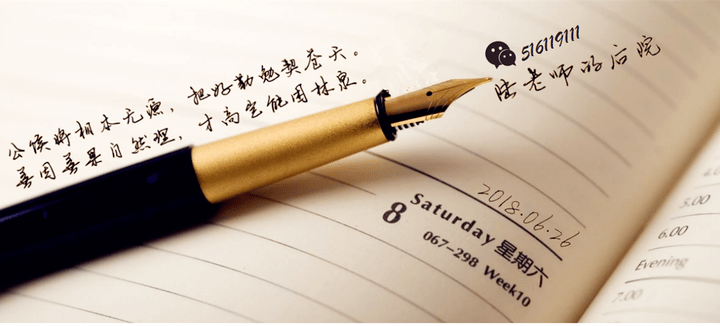 公侯将相本无源，把好勤勉契苍天。
善因善果自然理，才高岂能困林泉。
516119111
陆老师的后院
2018.06.26
8
Saturday 星期六
067-298 Week10
5.00
6.00
Evening
7.00